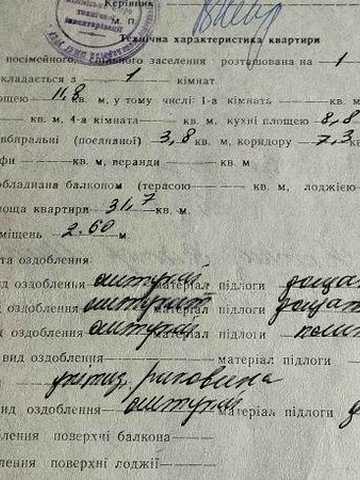 Керівник
М. П.
Технічна характеристика квартири
посімейного, спільного заселення розташована на 1
кладається з 1 кімнат
ощею 11,8 кв. м, у тому числі: 1-а кімната кв. м,
кв. м, 4-а кімната кв. м, кухні площею 8,8
вбиральні (поєднаної) 3,8 кв. м, коридору 7,3 кв
фи кв. м, веранди кв. м
обладнана балконом (терасою кв. м, лоджією
лоща квартири 31,7 кв. м.
міщень 2.60 м
та оздоблення
ид оздоблення штукат матеріал підлоги дощат
д оздоблення штукат матеріал підлоги дощат
д оздоблення штукат матеріал підлоги
вид оздоблення матеріал підлоги
унітаз, раковина
ид оздоблення штукат матеріал підлоги
блення поверхчі балкона
лення поверхні лоджії